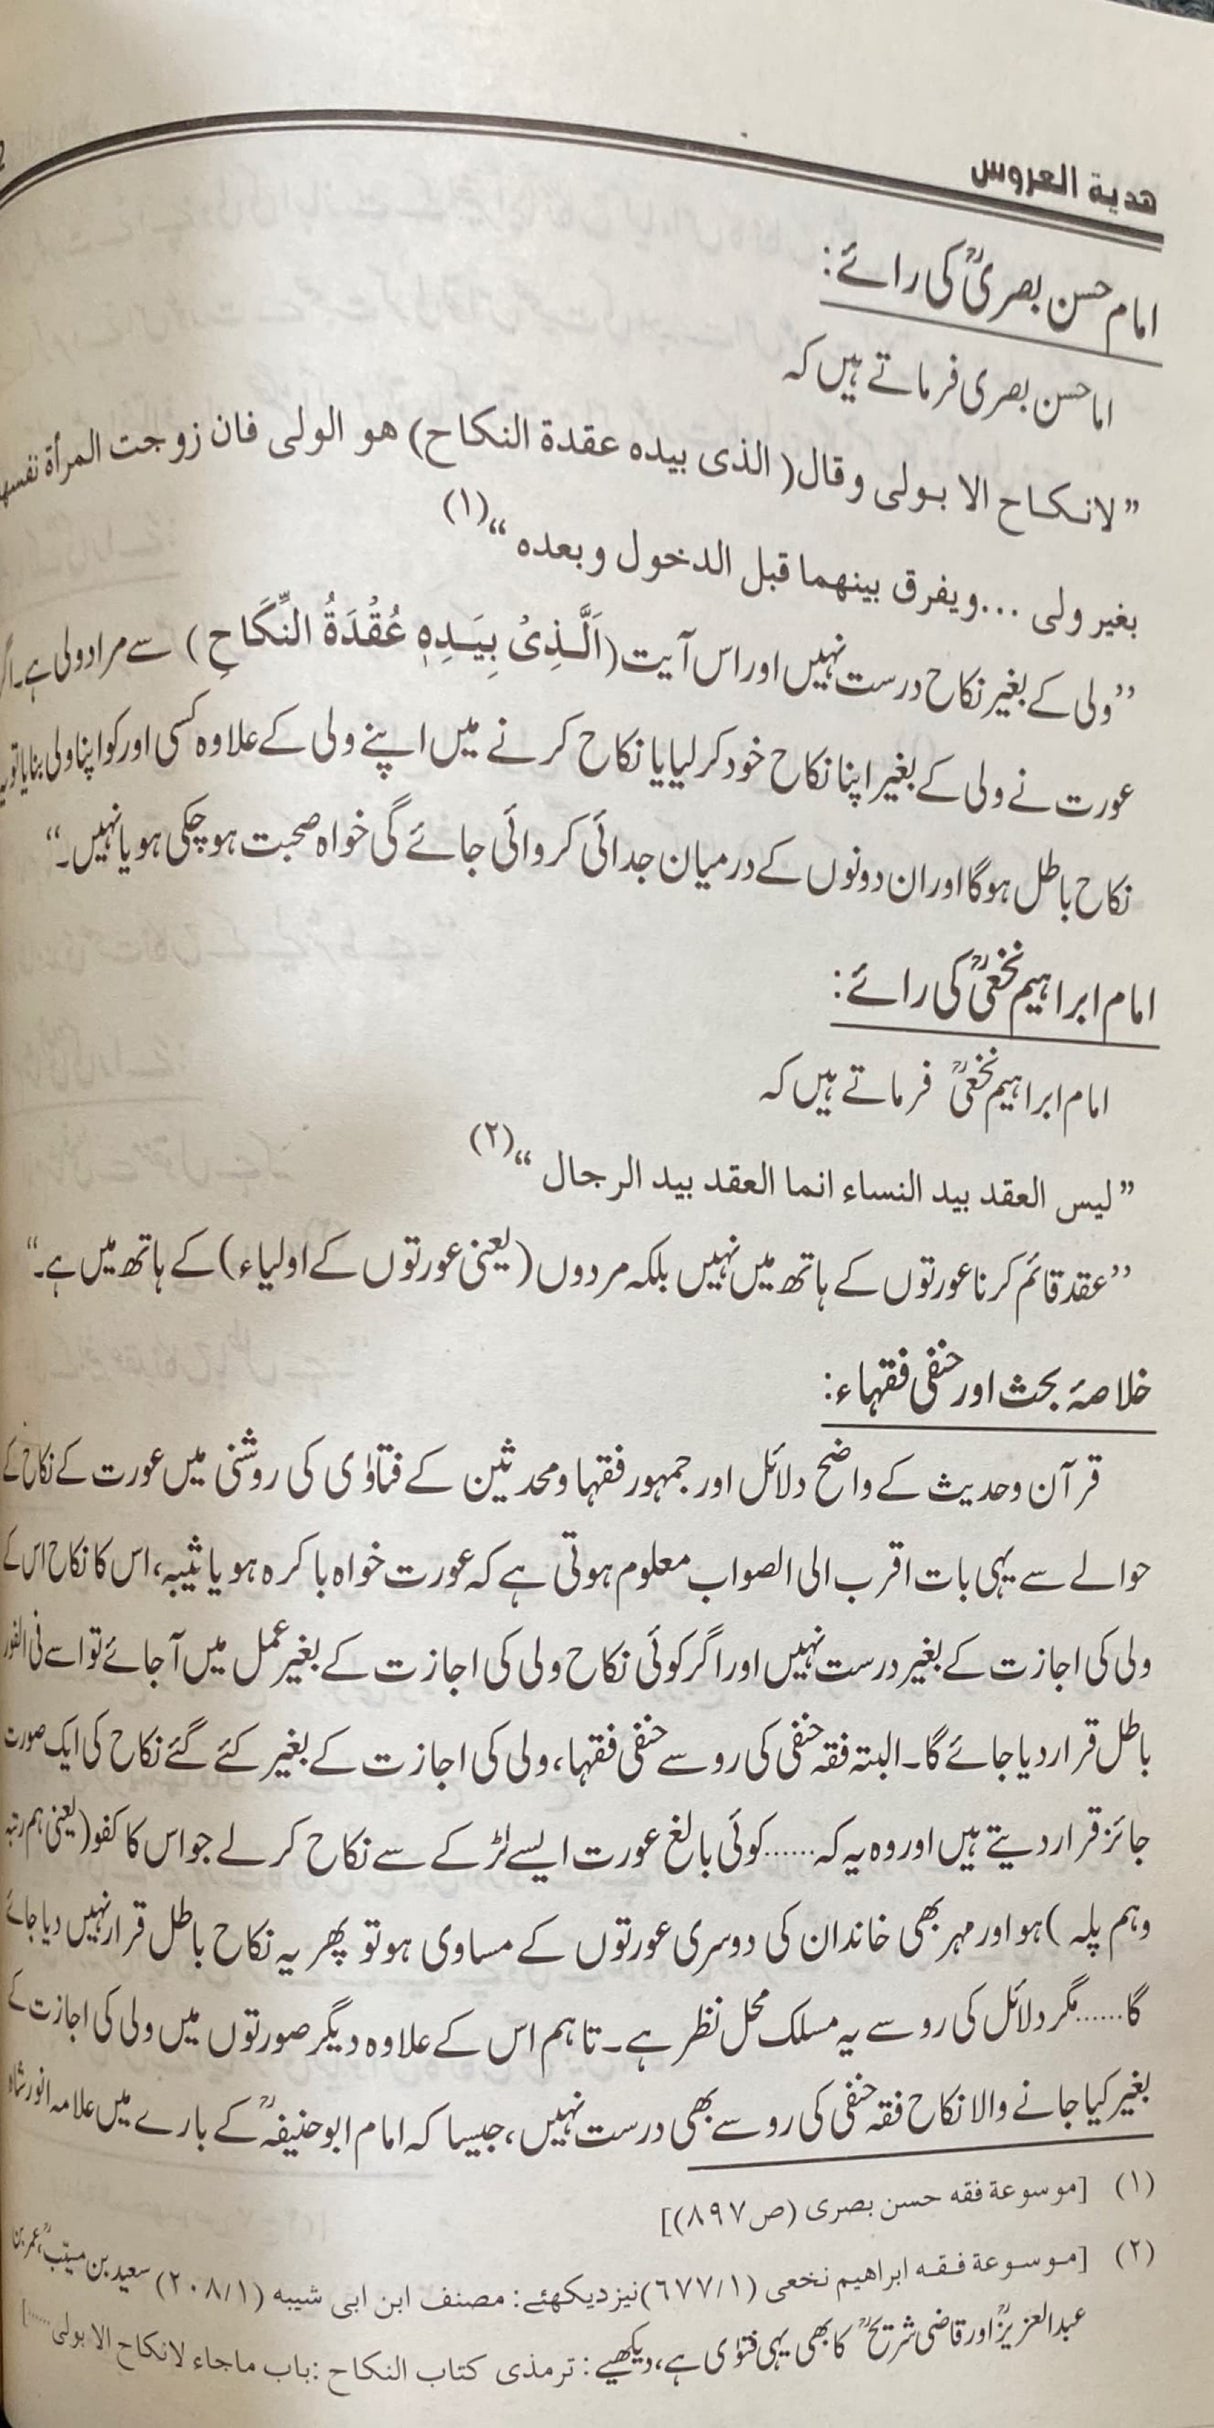 هدية العروس
امام حسن بصریؒ کی رائے:
اما حسن بصری فرماتے ہیں کہ
”لانکاح الا بولی وقال (الذی بیدہ عقدة النکاح) هو الولی فان زوجت المرأة نفسها
بغیر ولی ...ویفرق بینهما قبل الدخول وبعده“(۱)
”ولی کے بغیر نکاح درست نہیں اور اس آیت (اَلَّذِیْ بِیَدِہٖ عُقْدَةُ النِّکَاحِ) سے مراد ولی ہے۔ اگر
عورت نے ولی کے بغیر اپنا نکاح خود کر لیا یا نکاح کرنے میں اپنے ولی کے علاوہ کسی اور کو اپنا ولی بنایا تو یہ
نکاح باطل ہوگا اور ان دونوں کے درمیان جدائی کروائی جائے گی خواہ صحبت ہو چکی ہو یا نہیں۔“
امام ابراہیم نخعیؒ کی رائے:
امام ابراہیم نخعیؒ فرماتے ہیں کہ
”لیس العقد بید النساء انما العقد بید الرجال“(۲)
”عقد قائم کرنا عورتوں کے ہاتھ میں نہیں بلکہ مردوں (یعنی عورتوں کے اولیاء) کے ہاتھ میں ہے۔“
خلاصۂ بحث اور حنفی فقہاء:
قرآن وحدیث کے واضح دلائل اور جمہور فقہا ومحدثین کے فتاوٰی کی روشنی میں عورت کے نکاح کے
حوالے سے یہی بات اقرب الی الصواب معلوم ہوتی ہے کہ عورت خواہ باکرہ ہو یا ثیبہ، اس کا نکاح اس کے
ولی کی اجازت کے بغیر درست نہیں اور اگر کوئی نکاح ولی کی اجازت کے بغیر عمل میں آجائے تو اسے فی الفور
باطل قرار دیا جائے گا۔ البتہ فقہ حنفی کی رو سے حنفی فقہا، ولی کی اجازت کے بغیر کئے گئے نکاح کی ایک صورت
جائز قرار دیتے ہیں اور وہ یہ کہ ...... کوئی بالغ عورت ایسے لڑکے سے نکاح کر لے جو اس کا کفو (یعنی ہم رتبہ
وہم پلہ) ہو اور مہر بھی خاندان کی دوسری عورتوں کے مساوی ہو تو پھر یہ نکاح باطل قرار نہیں دیا جائے
گا ...... مگر دلائل کی رو سے یہ مسلک محل نظر ہے۔ تاہم اس کے علاوہ دیگر صورتوں میں ولی کی اجازت کے
بغیر کیا جانے والا نکاح فقہ حنفی کی رو سے بھی درست نہیں، جیسا کہ امام ابوحنیفہؒ کے بارے میں علامہ انور شاہ
(۱) [موسوعة فقه حسن بصری (ص۸۹۷)]
(۲) [موسوعة فقه ابراهیم نخعی (۶۷۷/۱) نیز دیکھئے: مصنف ابن ابی شیبه (۲۰۸/۱) سعید بن مسیبؒ، عمر بن
عبدالعزیزؒ اور قاضی شریحؒ کا بھی یہی فتوٰی ہے، دیکھیے: ترمذی کتاب النکاح: باب ماجاء لانکاح الا بولی ......]